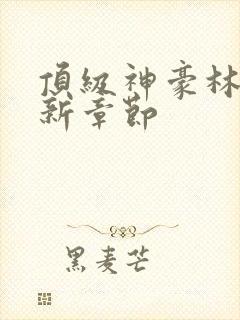 頂級神豪林
新章節
黑麦芒